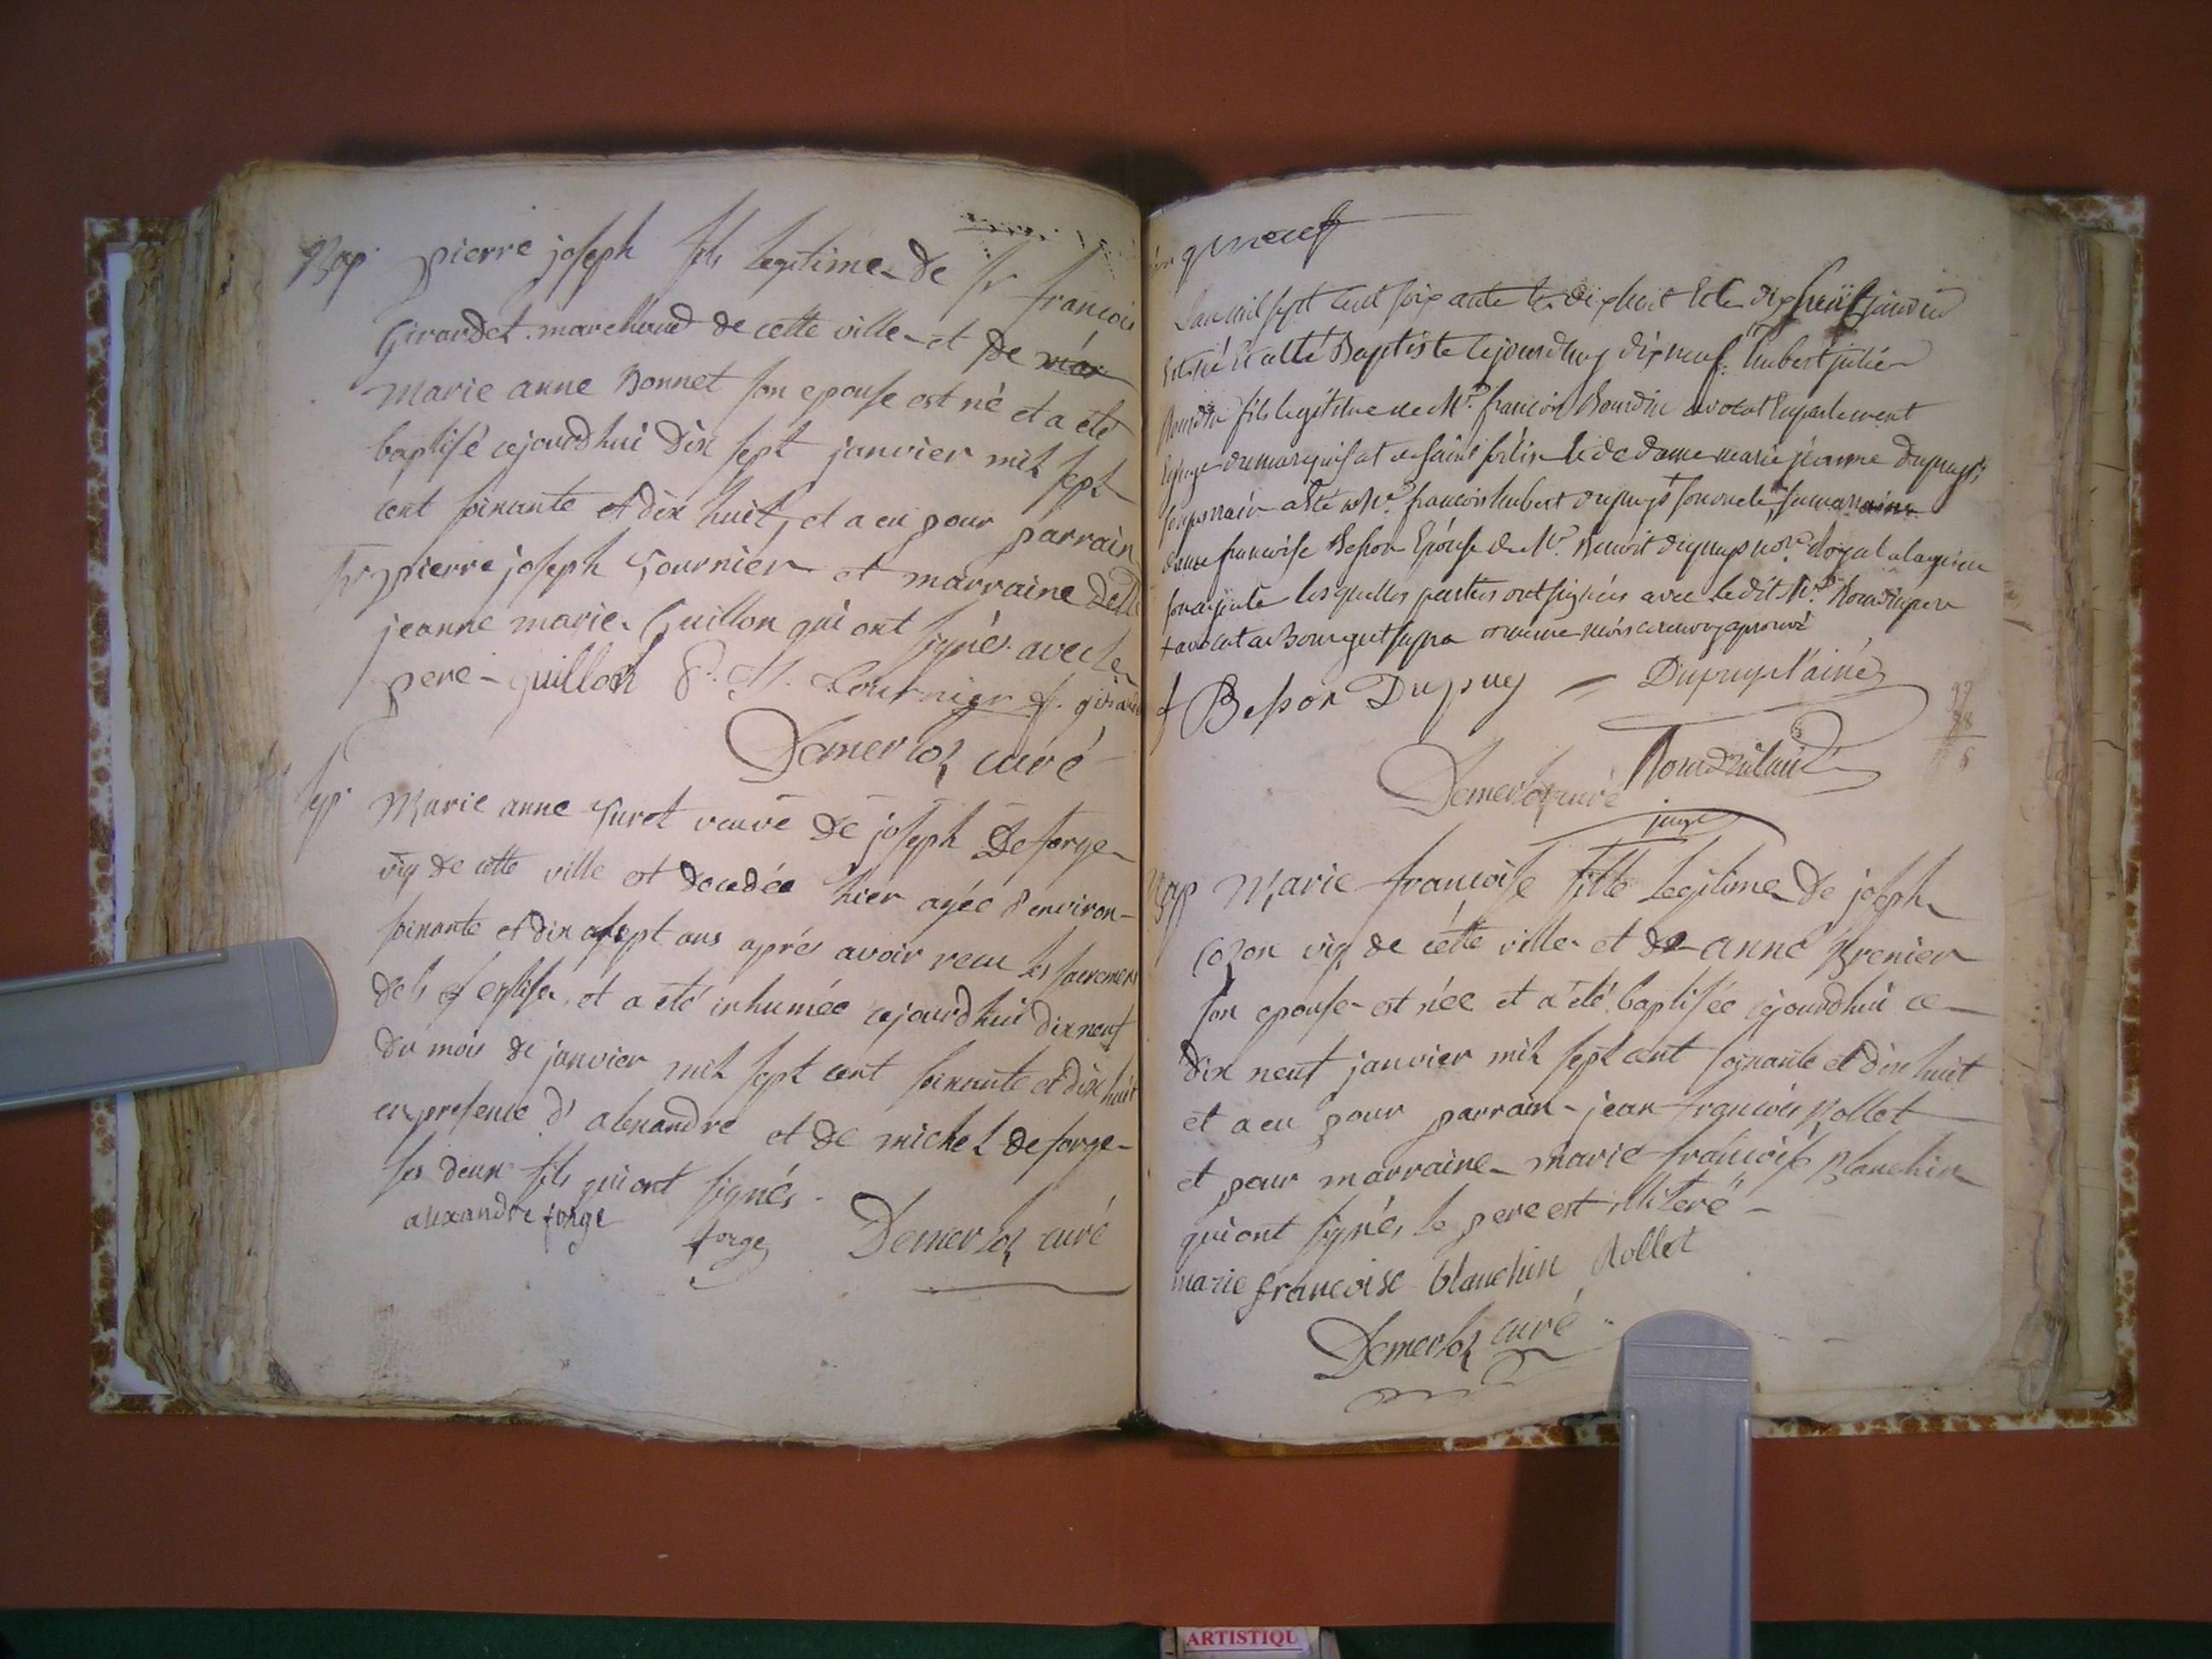 Bap. pierre joseph fils legitime de sr francois
Girardet marchand de cette ville et de
marie anne Bonnet son epouse est né et a été
baptisé cejourdhui dix sept janvier mil sept
cent soixante et dix huit, et a eu pour parrain
sr pierre joseph fournier et marraine delle
jeanne marie Guillon qui ont signés avec le
pere - guillon P. J. fournier f. girardet
Demerloz curé
Marie anne furet veuve de joseph Deforge
vig de cette ville est decedée hier agée d'environ
soixante et dix sept ans aprés avoir recu les sacremens
de eglise et a eté inhumée cejourdhui dix neuf
du mois de janvier mil sept cent soixante et dix huit
en presence d'alexandre et de michel deforge
ses deux fils qui ont signés
alexandre forge forge Demerloz curé
neuf
Lan mil sept cent soixante dix huit et le dix huit janvier
est né et a été Baptiste cejourdhuy dix neuf hubert julien
Bourdin fils legitime de Mr francois Bourdin avocat en parlement
et juge du marquisat de saint et de dame marie jeanne Dupuys,
son parrain a été Mr francois hubert dupuys son oncle, sa marraine
dame francoise Besson Epouse de Mr Benoit dupuys royal
les quelles parties ont signées avec ledit Mr Bourdin pere
f Besson Dupuy = Dupuys l'ainé
Demerloz curé
juge
Bap Marie francoise fille legitime de joseph
Cozon vig de cette ville et de anne Brenier
son epouse est née et a été baptisée cejourdhui ce
dix neuf janvier mil sept cent soixante et dix huit
et a eu pour parrain - jean francois Rollet
et pour marraine marie francoise Blanchin
qui ont signés, le pere est illiteré -
marie francoise blanchin Rollet
Demerloz curé
ARTISTIQU